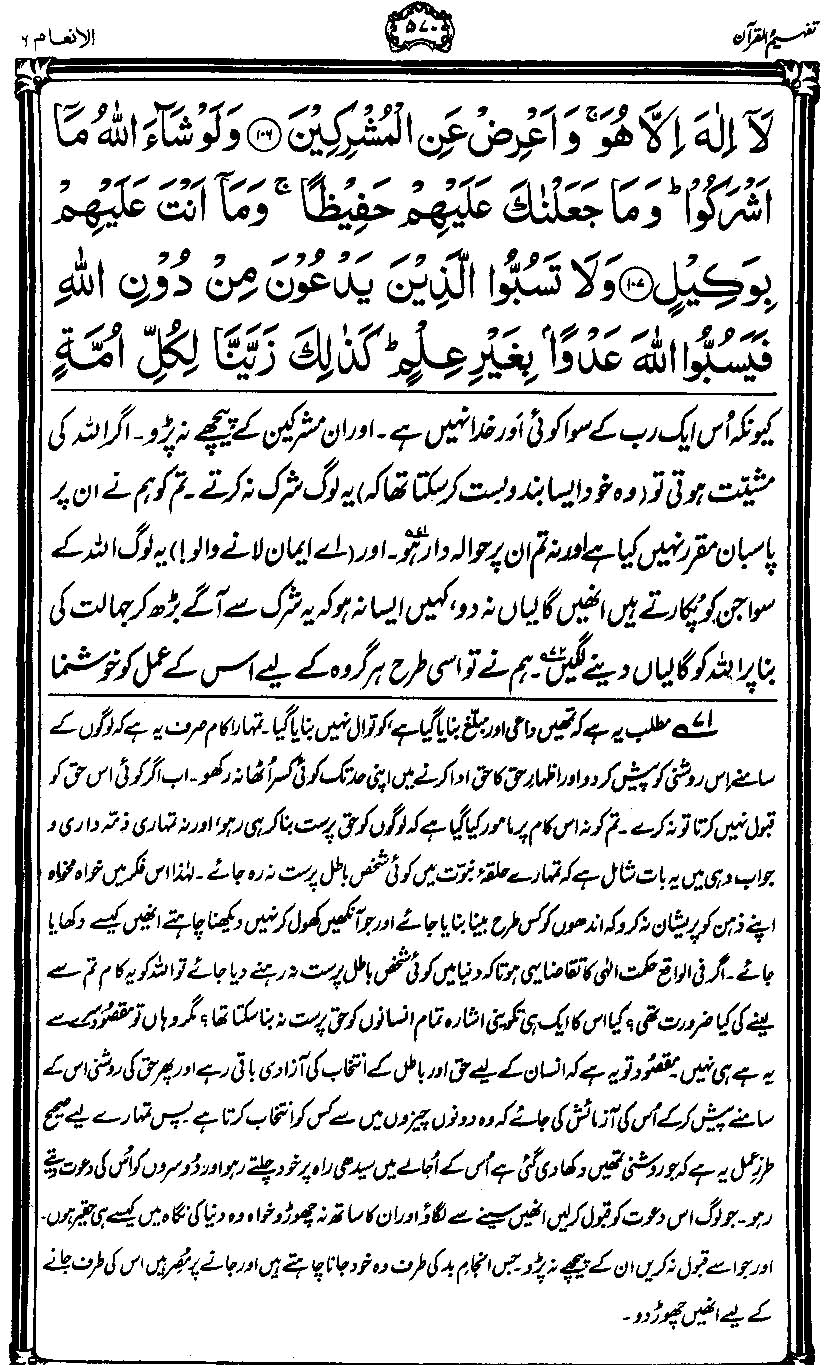 تفہیم القرآن
۵۷۰
الانعام ۶
لَآ اِلٰهَ اِلَّا هُوَ ۚ وَاَعْرِضْ عَنِ الْمُشْرِكِيْنَ ۝۱۰۶ وَلَوْ شَآءَ اللّٰهُ مَآ
اَشْرَكُوْا ؕ وَمَا جَعَلْنٰكَ عَلَيْهِمْ حَفِيْظًا ۚ وَمَآ اَنْتَ عَلَيْهِمْ
بِوَكِيْلٍ ۝۱۰۷ وَلَا تَسُبُّوا الَّذِيْنَ يَدْعُوْنَ مِنْ دُوْنِ اللّٰهِ
فَيَسُبُّوا اللّٰهَ عَدْوًۢا بِغَيْرِ عِلْمٍ ؕ كَذٰلِكَ زَيَّنَّا لِكُلِّ اُمَّةٍ
کیونکہ اُس ایک رب کے سوا کوئی اَور خدا نہیں ہے۔ اور ان مشرکین کے پیچھے نہ پڑو۔ اگر اللہ کی
مشیّت ہوتی تو (وہ خود ایسا بندوبست کر سکتا تھا کہ) یہ لوگ شرک نہ کرتے۔ تم کو ہم نے ان پر
پاسبان مقرر نہیں کیا ہے اور نہ تم ان پر حوالہ دار ہو۷۱۔ اور (اے ایمان لانے والو!) یہ لوگ اللہ کے
سوا جن کو پکارتے ہیں انھیں گالیاں نہ دو، کہیں ایسا نہ ہو کہ یہ شرک سے آگے بڑھ کر جہالت کی
بنا پر اللہ کو گالیاں دینے لگیں۷۲۔ ہم نے تو اسی طرح ہر گروہ کے لیے اس کے عمل کو خوشنما
۷۱ مطلب یہ ہے کہ تمھیں داعی اور مبلّغ بنایا گیا ہے، کوتوال نہیں بنایا گیا۔ تمہارا کام صرف یہ ہے کہ لوگوں کے
سامنے اس روشنی کو پیش کر دو اور اظہارِ حق کا حق ادا کرنے میں اپنی حد تک کوئی کسر اُٹھا نہ رکھو۔ اب اگر کوئی اس حق کو
قبول نہیں کرتا تو نہ کرے۔ تم کو نہ اس کام پر مامور کیا گیا ہے کہ لوگوں کو حق پرست بنا کر ہی رہو، اور نہ تمہاری ذمّہ داری و
جواب دہی میں یہ بات شامل ہے کہ تمہارے حلقۂ نبوّت میں کوئی شخص باطل پرست نہ رہ جائے۔ لہٰذا اس فکر میں خواہ مخواہ
اپنے ذہن کو پریشان نہ کرو کہ اندھوں کو کس طرح بینا بنایا جائے اور جو آنکھیں کھول کر نہیں دیکھنا چاہتے انھیں کیسے دکھایا
جائے۔ اگر فی الواقع حکمت الٰہی کا تقاضا یہی ہوتا کہ دنیا میں کوئی شخص باطل پرست نہ رہنے دیا جائے تو اللہ کو یہ کام تم سے
لینے کی کیا ضرورت تھی؟ کیا اس کا ایک ہی تکوینی اشارہ تمام انسانوں کو حق پرست نہ بنا سکتا تھا؟ مگر وہاں تو مقصود سرے سے
یہ ہے ہی نہیں۔ مقصود تو یہ ہے کہ انسان کے لیے حق اور باطل کے انتخاب کی آزادی باقی رہے اور پھر حق کی روشنی اس کے
سامنے پیش کر کے اُس کی آزمائش کی جائے کہ وہ دونوں چیزوں میں سے کس کو انتخاب کرتا ہے۔ پس تمہارے لیے صحیح
طرزِ عمل یہ ہے کہ جو روشنی تمھیں دکھا دی گئی ہے اُس کے اُجالے میں سیدھی راہ پر خود چلتے رہو اور دُوسروں کو اُس کی دعوت دیتے
رہو۔ جو لوگ اس دعوت کو قبول کر لیں انھیں سینے سے لگاؤ اور ان کا ساتھ نہ چھوڑو خواہ وہ دنیا کی نگاہ میں کیسے ہی حقیر ہوں۔
اور جو اسے قبول نہ کریں ان کے پیچھے نہ پڑو۔ جس انجامِ بد کی طرف وہ خود جانا چاہتے ہیں اور جانے پر مُصِر ہیں اس کی طرف جانے
کے لیے انھیں چھوڑ دو۔